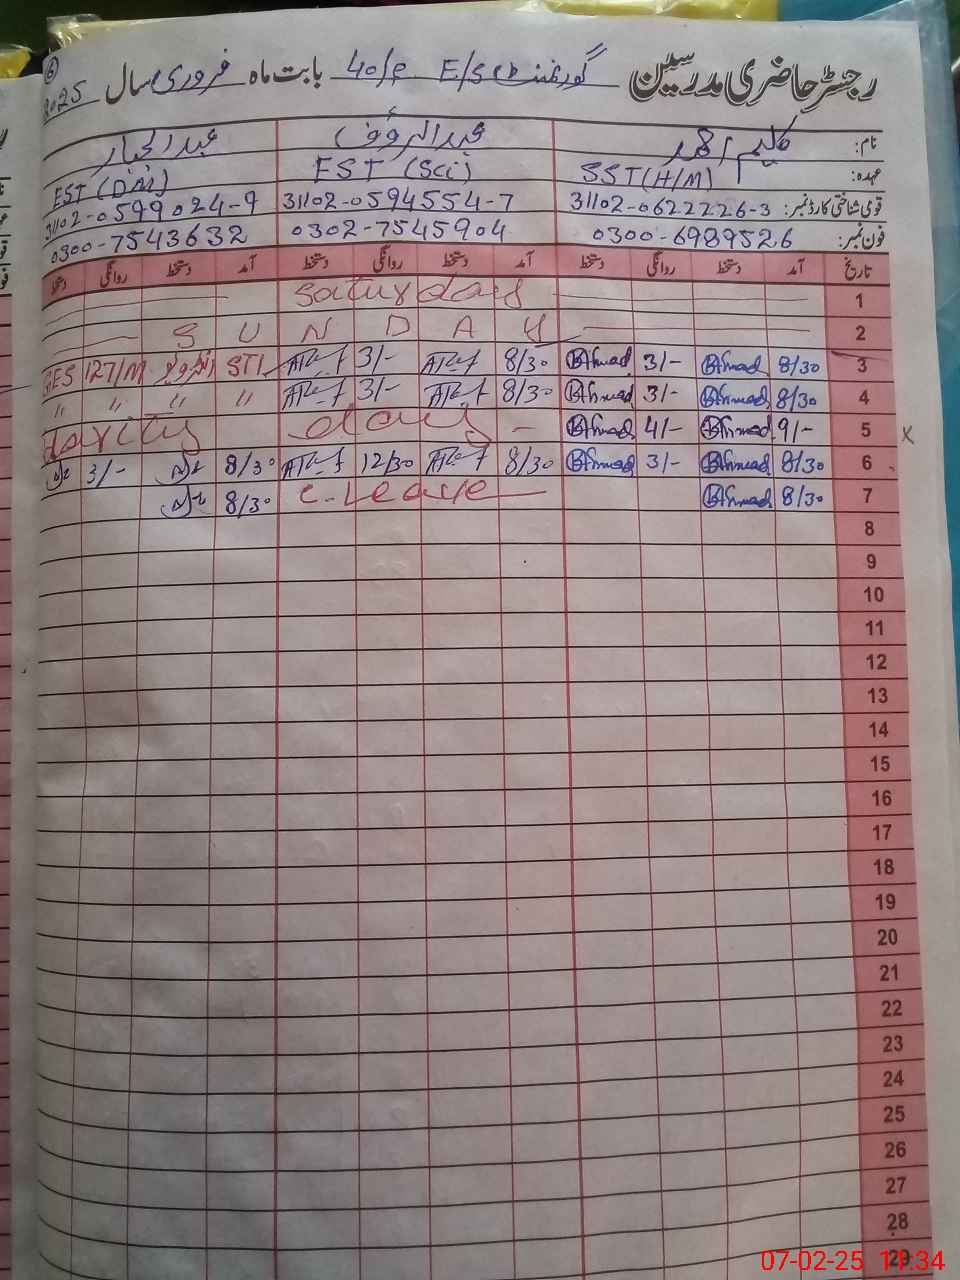 رجسٹر حاضری مدرسین گورنمنٹ E/S 40/P بابت ماہ فروری سال 2025
6
نام: کلیم احمد عبدالرؤف عبدالجبار
عہدہ: SST(H/M) EST (Sci) EST (DM)
قومی شناختی کارڈ نمبر: 31102-0622226-3 31102-0594554-7 31102-0599024-9
فون نمبر: 0300-6989526 0302-7545904 0300-7543632
تاریخ آمد دستخط روانگی دستخط آمد دستخط روانگی دستخط آمد دستخط روانگی دستخط
1 Saturday
2 S U N D A Y
3 8/30 Ahmad 3/- Ahmad 8/30 3/- STI 127/M GES
4 8/30 Ahmad 3/- Ahmad 8/30 3/- " " " "
5 9/- Ahmad 4/- Ahmad day x
6 8/30 Ahmad 3/- Ahmad 8/30 12/30 8/30 3/-
7 8/30 Ahmad C. Leave 8/30
8
9
10
11
12
13
14
15
16
17
18
19
20
21
22
23
24
25
26
27
28
29
07-02-25 11:34